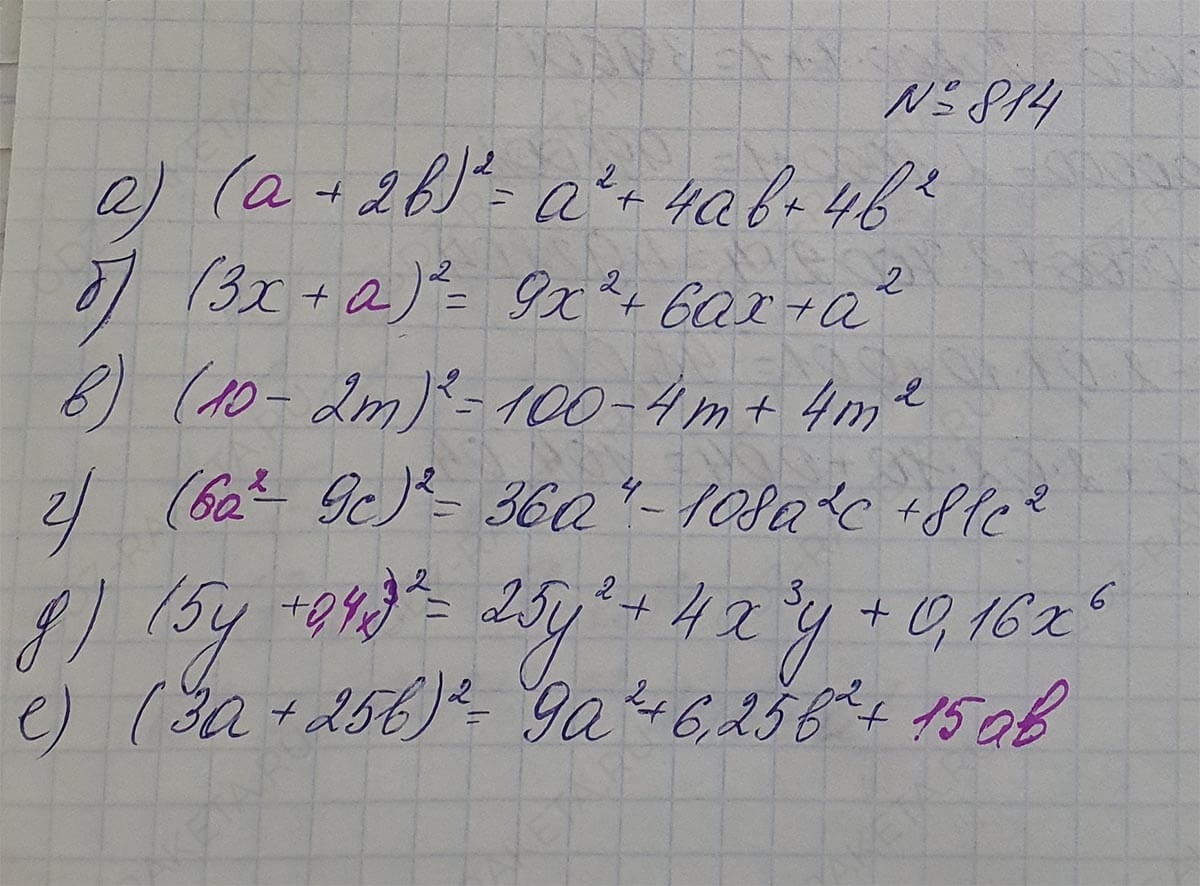 №814
а) (a + 2b)² = a² + 4ab + 4b²
б) (3x + a)² = 9x² + 6ax + a²
в) (10 - 2m)² = 100 - 4m + 4m²
г) (6a² - 9c)² = 36a⁴ - 108a²c + 81c²
д) (5y + 0,4x³)² = 25y² + 4x³y + 0,16x⁶
е) (3a + 25b)² = 9a² + 6,25b² + 15ab